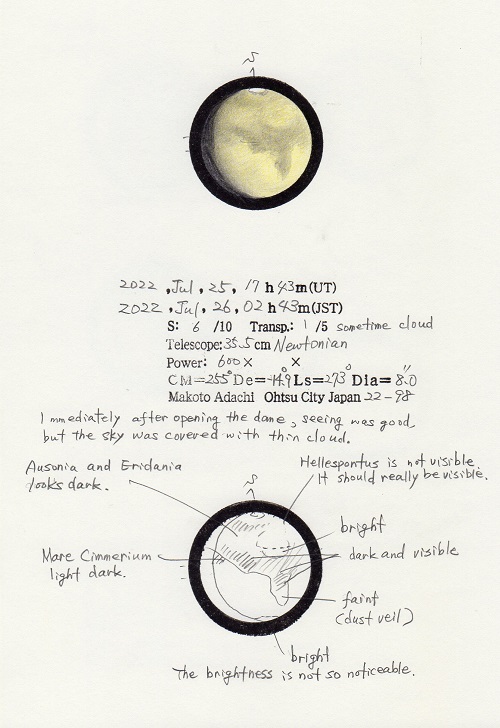 S
2022, Jul, 25, 17 h 43 m (UT)
2022, Jul, 26, 02 h 43 m (JST)
S: 6 /10 Transp.: 1 /5 sometime cloud
Telescope: 35.5 cm Newtonian
Power: 600× ×
CM=255° De=-14.9° Ls=273° Dia=8.0"
Makoto Adachi Ohtsu City Japan 22-98
Immediately after opening the dame, seeing was good,
but the sky was covered with thin cloud.
Ausonia and Eridania
looks dark.
Hellespontus is not visible.
It should really be visible.
S
bright
Mare Cimmerium
light dark.
dark and visible
faint
(dust veil)
bright
The brightness is not so noticeable.